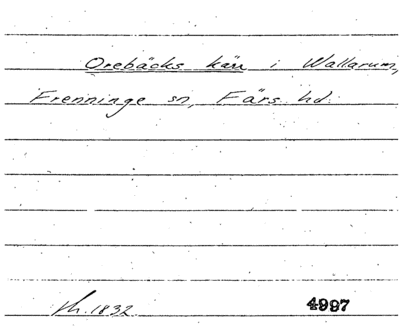 Orebäcks kärr i Wallarum,
Frenninge sn, Färs hd.
1832 4997